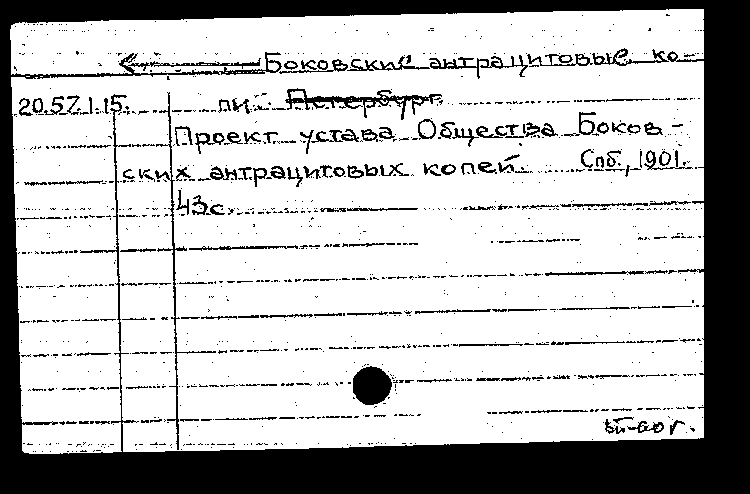 Боковские антрацитовые ко-
20.57.1.15. пи. Петербург.
Проект устава Общества Боков-
ских антрацитовых копей. Спб., 1901.
43с.